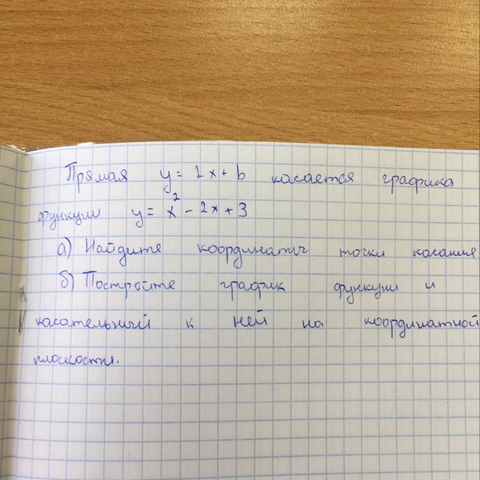 Прямая y = 2x + b касается графика
функции y = x² - 2x + 3
а) Найдите координаты точки касания
б) Постройте график функции и
касательный к ней на координатной
плоскости.